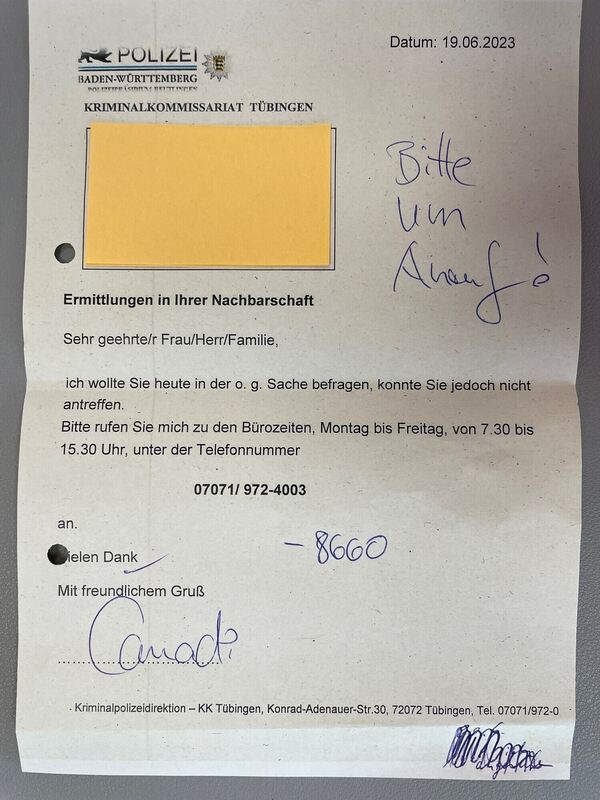 Datum: 19.06.2023
POLIZEI
BADEN-WÜRTTEMBERG
POLIZEIPRÄSIDIUM REUTLINGEN
KRIMINALKOMMISSARIAT TÜBINGEN
Bitte
um
Anruf!
Ermittlungen in Ihrer Nachbarschaft
Sehr geehrte/r Frau/Herr/Familie,
ich wollte Sie heute in der o. g. Sache befragen, konnte Sie jedoch nicht
antreffen.
Bitte rufen Sie mich zu den Bürozeiten, Montag bis Freitag, von 7.30 bis
15.30 Uhr, unter der Telefonnummer
07071/ 972-4003
an.
ielen Dank
- 8660
Mit freundlichem Gruß
Kriminalpolizeidirektion – KK Tübingen, Konrad-Adenauer-Str.30, 72072 Tübingen, Tel. 07071/972-0